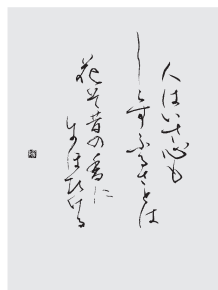 人はいさ心も
しらずふるさとは
花そ昔の香に
匂ほひける